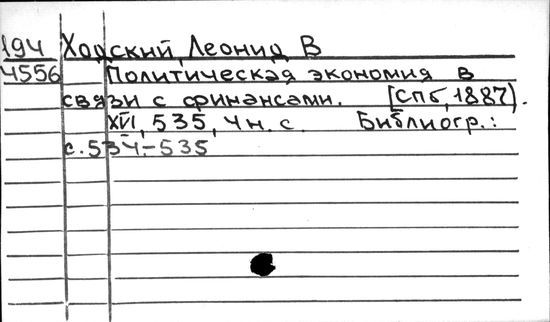 194 Ходский, Леонид В
4556 Политическая экономия в
связи с финансами. [СПб, 1887].
XVI, 535, 4 н. с. Библиогр.:
с. 534-535